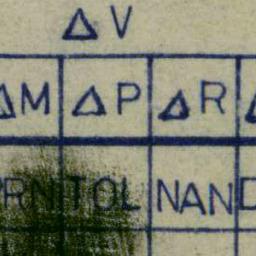 Δ V
ΔM ΔP ΔR Δ
RN TOL NAN D